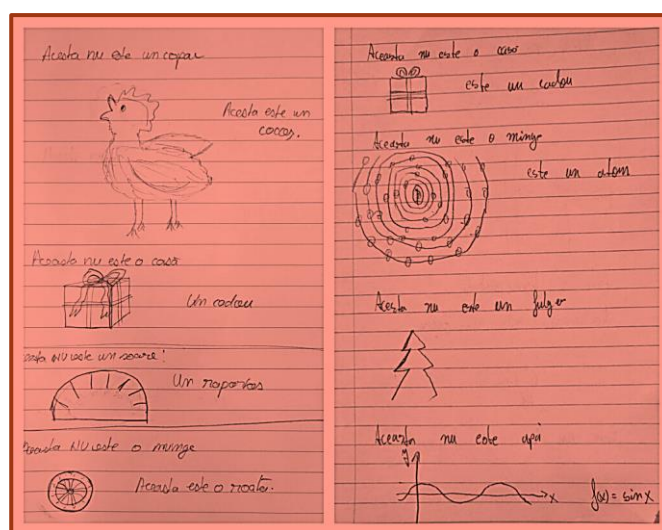 Acesta nu este un copac
Acesta este un
cocoș.
Aceasta nu este o casă
Un cadou
Acesta NU este un soare!
Un raportor
Aceasta NU este o minge
Aceasta este o roată.
Aceasta nu este o casă
este un cadou
Aceasta nu este o minge
este un atom
Acesta nu este un fulger
Aceasta nu este apă
y
x
f(x) = sin x